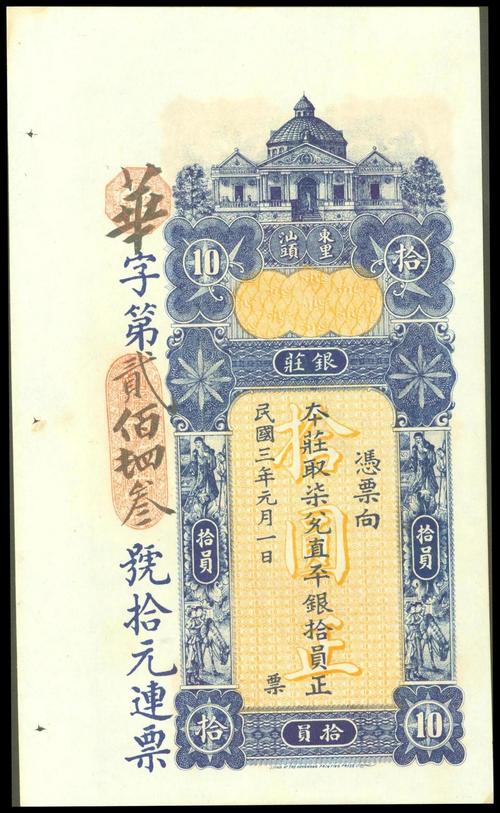 東里
汕頭
拾
10
銀莊
憑票向
本莊取柒兌直平銀拾員正
民國三年元月一日
票
拾圓正
拾員
拾員
拾員
拾
10
華字第貳佰叁號拾元連票